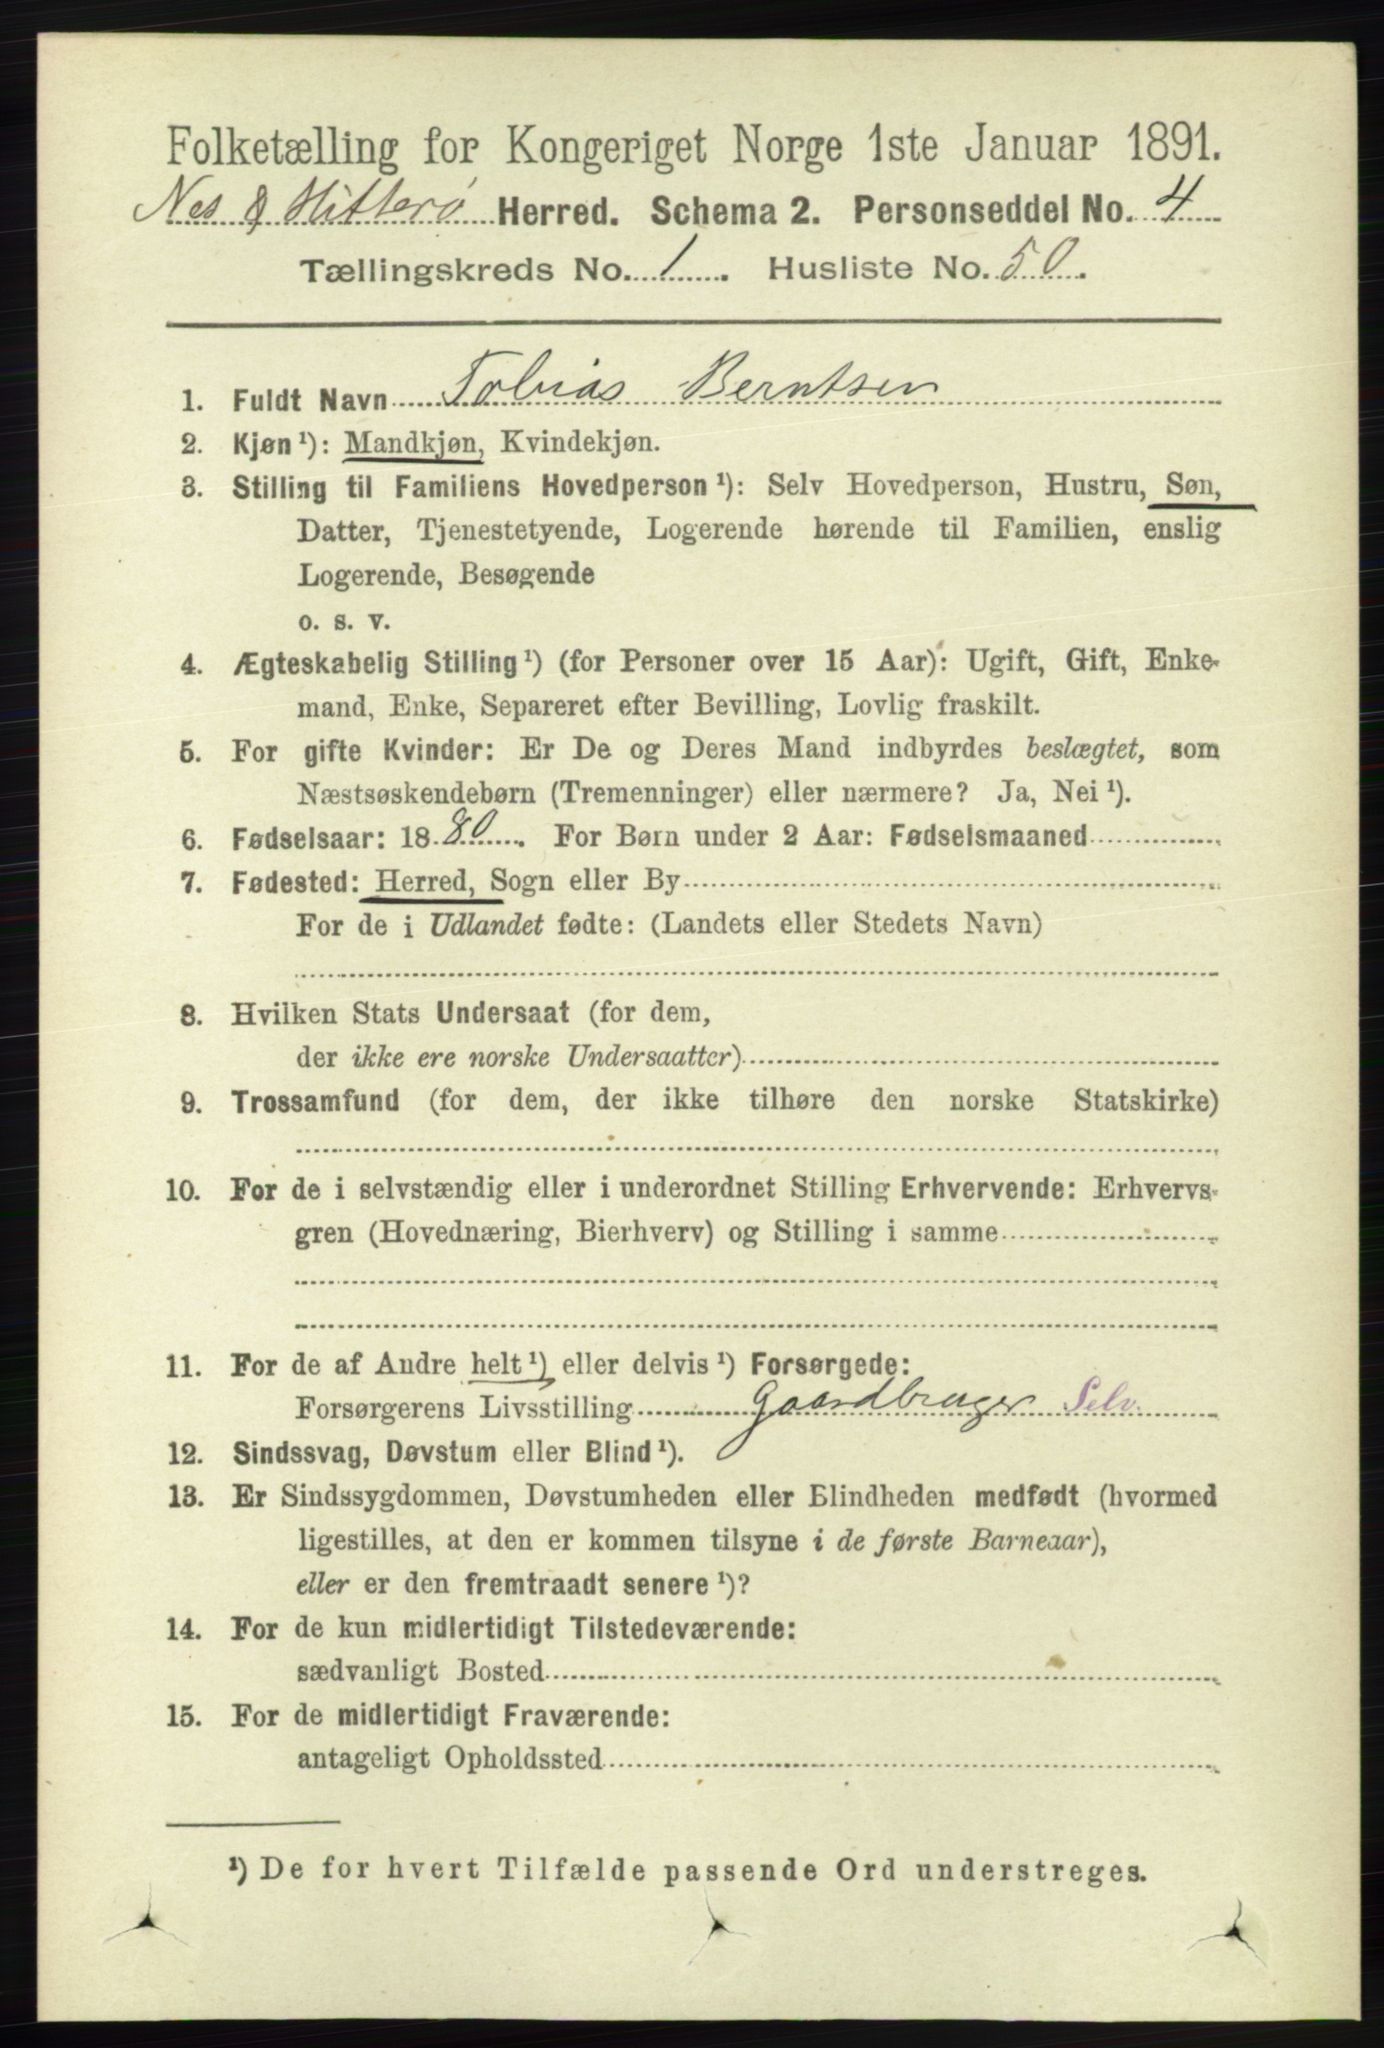 Folketælling for Kongeriget Norge 1ste Januar 1891.
Nes & Hitterø Herred. Schema 2. Personseddel No. 4
Tællingskreds No. 1. Husliste No. 50.
1. Fuldt Navn Tobias Berntsen
2. Kjøn ¹): Mandkjøn, Kvindekjøn.
3. Stilling til Familiens Hovedperson ¹): Selv Hovedperson, Hustru, Søn,
Datter, Tjenestetyende, Logerende hørende til Familien, enslig
Logerende, Besøgende
o. s. v.
4. Ægteskabelig Stilling ¹) (for Personer over 15 Aar): Ugift, Gift, Enke-
mand, Enke, Separeret efter Bevilling, Lovlig fraskilt.
5. For gifte Kvinder: Er De og Deres Mand indbyrdes beslægtet, som
Næstsøskendebørn (Tremenninger) eller nærmere? Ja, Nei ¹).
6. Fødselsaar: 1880. For Børn under 2 Aar: Fødselsmaaned
7. Fødested: Herred, Sogn eller By
For de i Udlandet fødte: (Landets eller Stedets Navn)
8. Hvilken Stats Undersaat (for dem,
der ikke ere norske Undersaatter)
9. Trossamfund (for dem, der ikke tilhøre den norske Statskirke)
10. For de i selvstændig eller i underordnet Stilling Erhvervende: Erhvervs-
gren (Hovednæring, Bierhverv) og Stilling i samme
11. For de af Andre helt ¹) eller delvis ¹) Forsørgede:
Forsørgerens Livsstilling Gaardbruger Selv.
12. Sindssvag, Døvstum eller Blind ¹).
13. Er Sindssygdommen, Døvstumheden eller Blindheden medfødt (hvormed
ligestilles, at den er kommen tilsyne i de første Barneaar),
eller er den fremtraadt senere ¹)?
14. For de kun midlertidigt Tilstedeværende:
sædvanligt Bosted
15. For de midlertidigt Fraværende:
antageligt Opholdssted
¹) De for hvert Tilfælde passende Ord understreges.